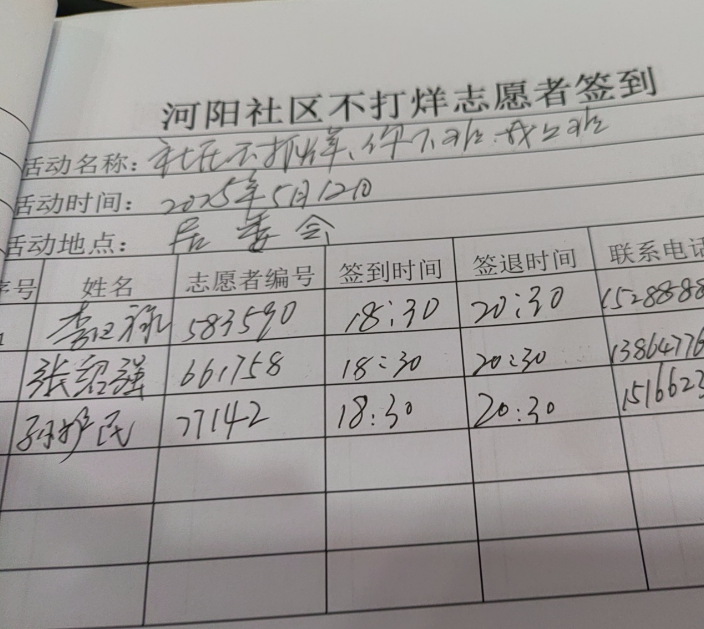 河阳社区不打烊志愿者签到
活动名称：社区不打烊、你下班、我上班
活动时间：2025年5月12日
活动地点：居委会
序号 姓名 志愿者编号 签到时间 签退时间 联系电话
1 583590 18:30 20:30 15288588
张绍强 661758 18:30 20:30 13864776
孙护民 77142 18:30 20:30 1516623